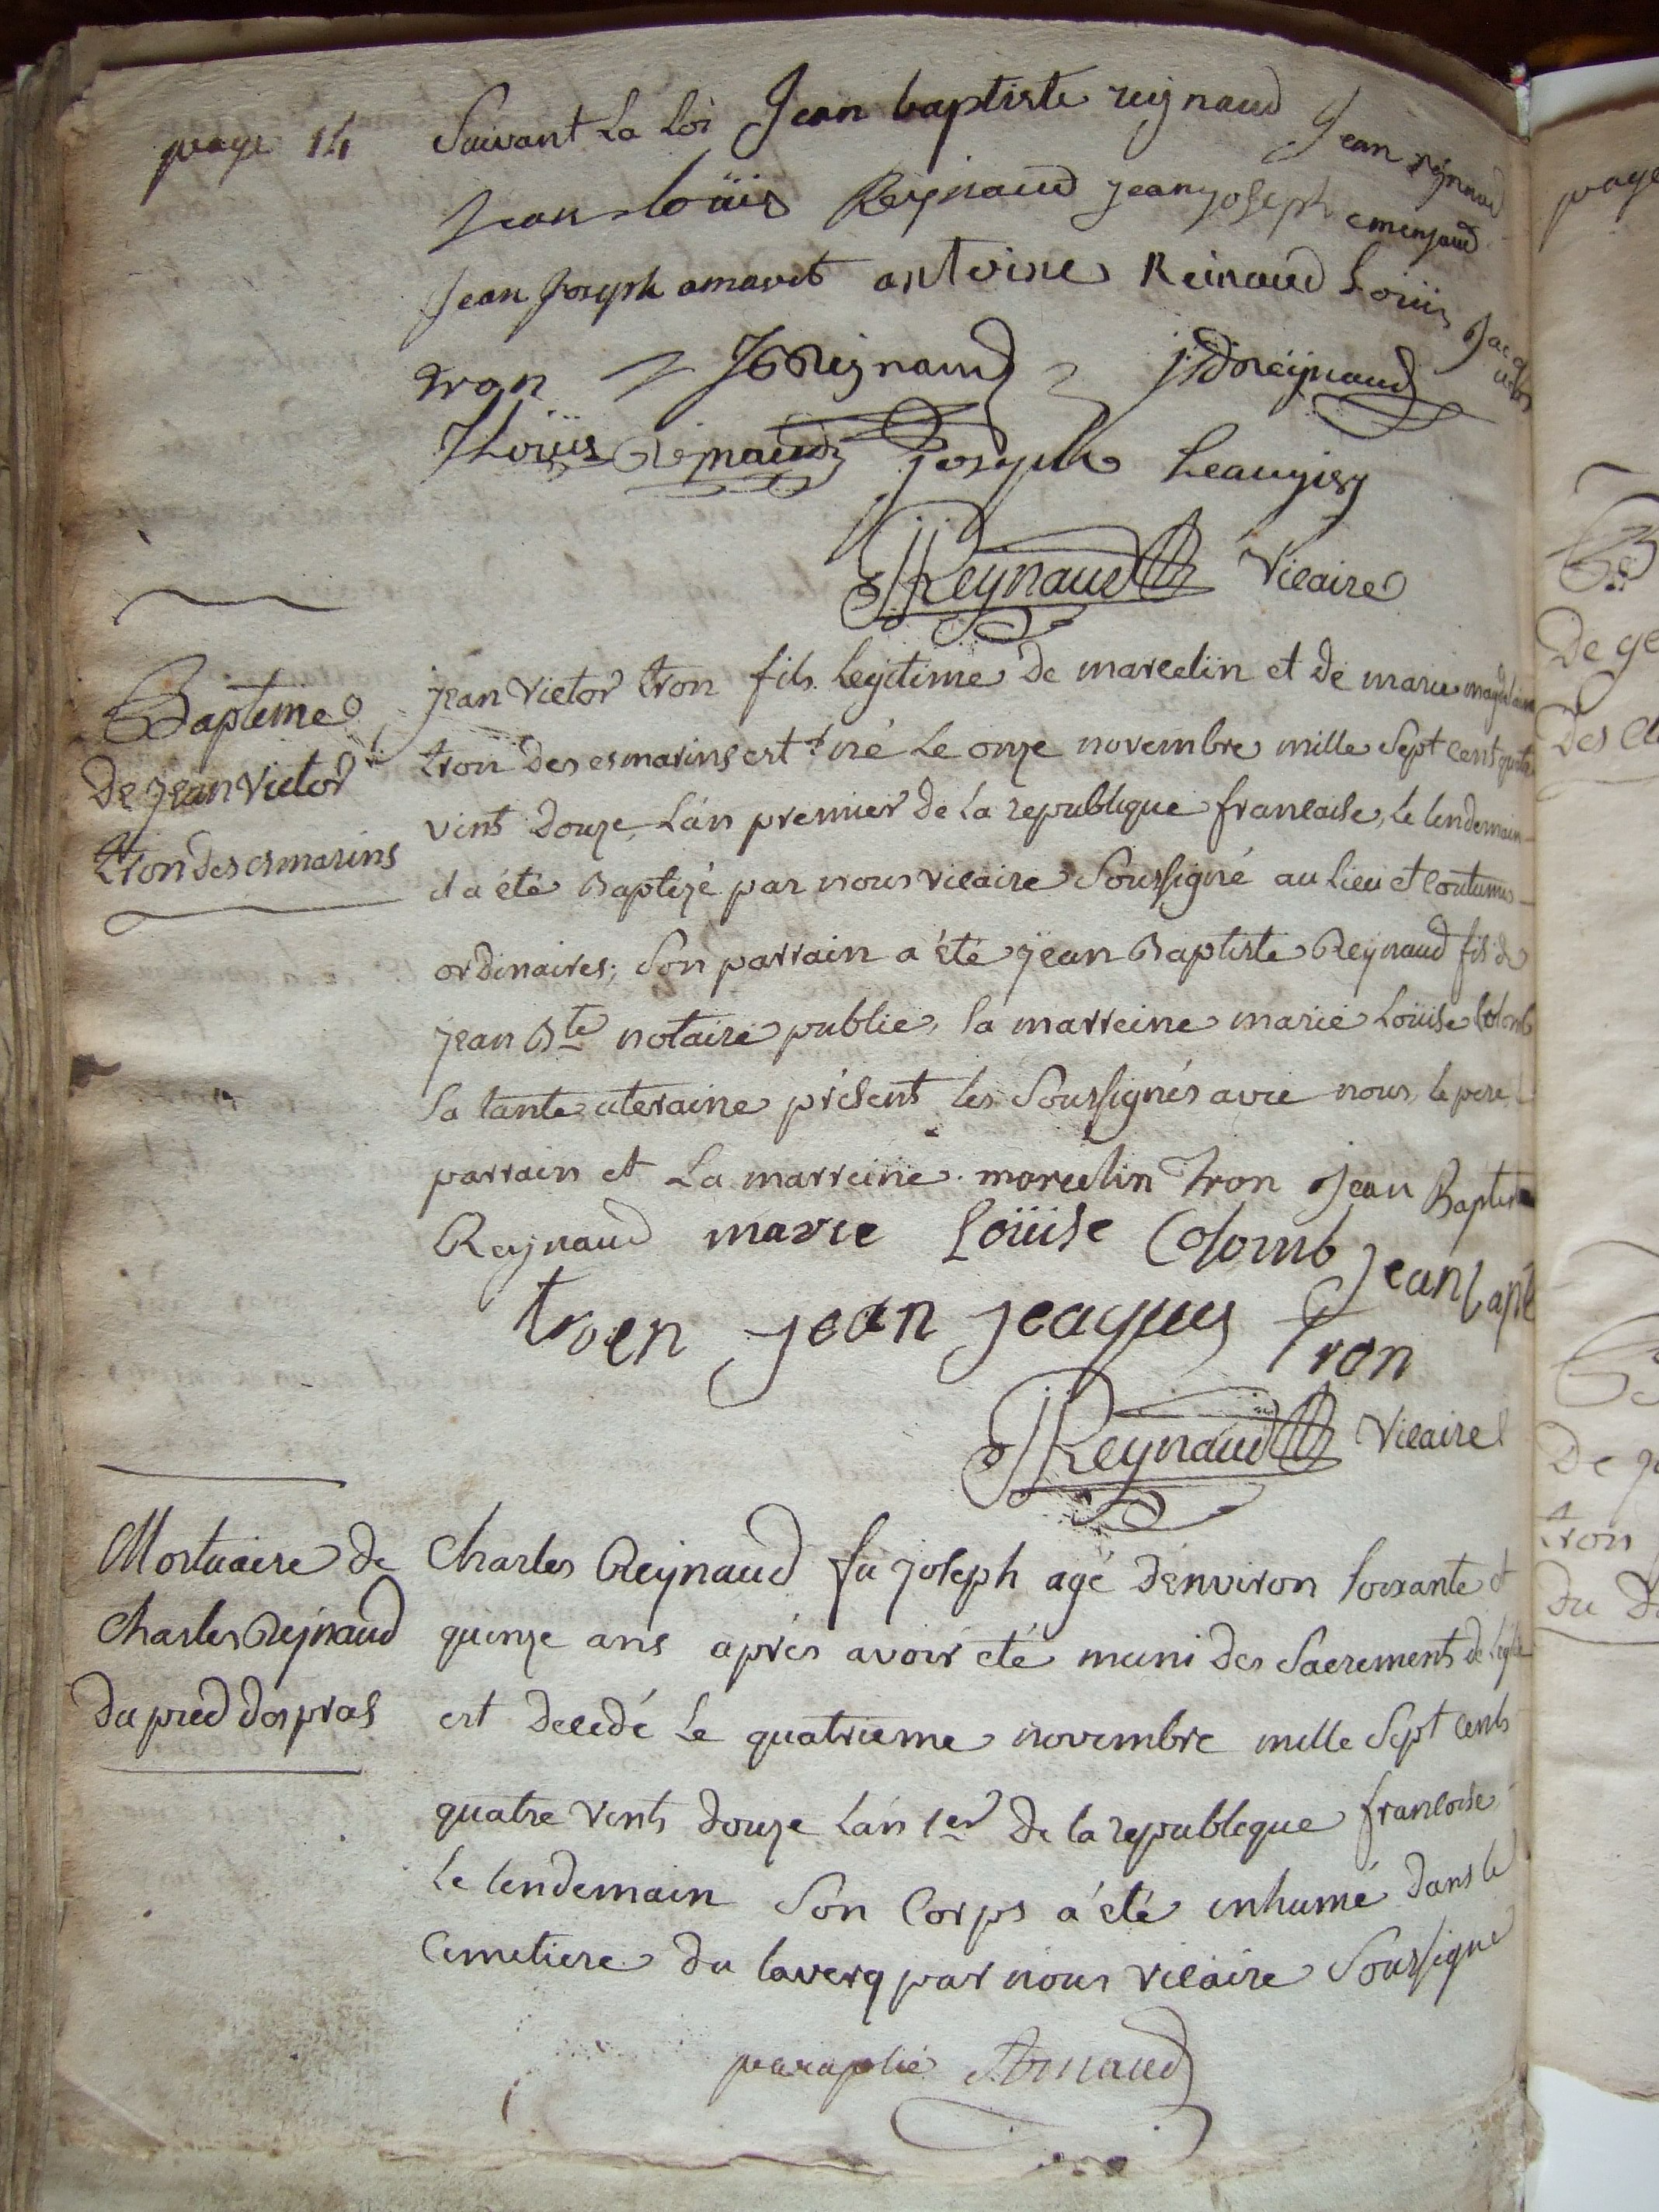 page 14
Suivant La Loi Jean baptiste reignaud Jean reynaud
Jean loüis Reynaud jean joseph emenjaud
Jean Joseph amavet antoine Reinaud Loüis Jacques
tron JBReignaud jjdreijnaud
JLoüis Reinaud joseph Leaugier
JJReynaud Vicaire
Bapteme
De jean victor
tron des esmarins
jean victor tron fils legitime de marcelin et de marie magdelaine
tron des esmarins est né Le onze novembre mille Sept cent quatre
vint douze, L'an premier de la republique francaise, le lendemain
il a été Baptizé par nous vicaire Soussigné au lieu et coutumes
ordinaires; Son parrain a été jean Baptiste Reynaud fils de
jean Bte notaire public, la marreine marie Loüise Colomb
Sa tante uteraine présent les Soussignés avec nous, le pere,
parrain et La marreine. marcelin tron Jean Baptiste
Reynaud marie Loüise Colomb jean bapte
troen jean jeacques tron
JJReynaud Vicaire
Mortuaire de
Charles Reijnaud
du pied dos pras
Charles Reijnaud fu joseph agé d'environ soixante et
quinze ans aprés avoir été muni des Sacrements de l'eglise
est decedé Le quatrieme novembre mille Sept cents
quatre vints douze L'an 1er de la republeque francoise
Le lendemain Son Corps a été inhumé dans le
Cimetiere du laverq par nous vicaire Soussigné
paraphé Arnaud
page
De ge
Des
De
tron
Du